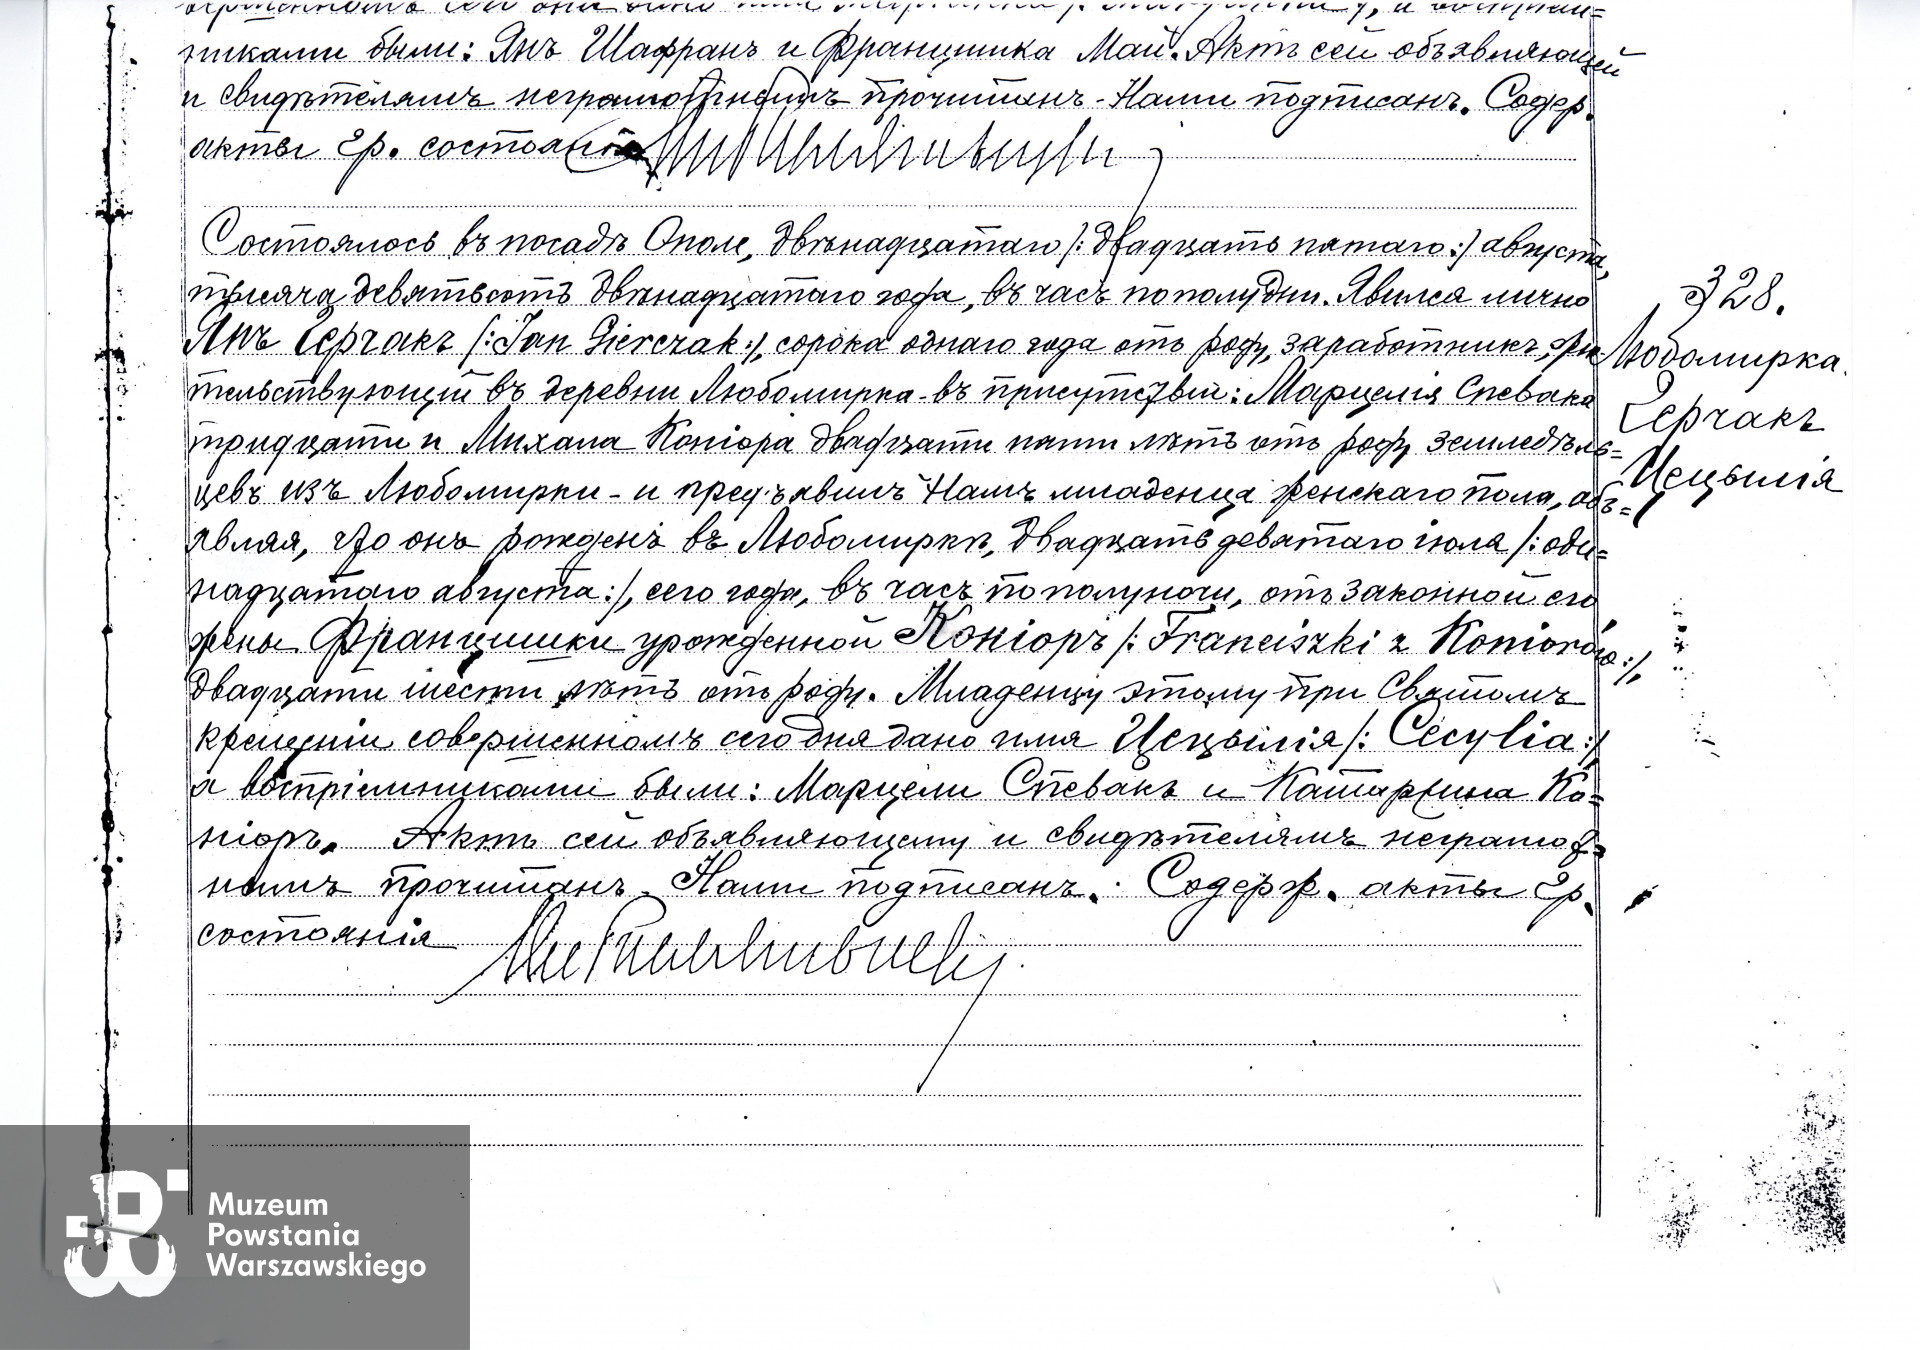 никами были: Янъ Шафранъ и Францишка Май. Актъ сей объявляющей
и свидѣтелямъ неграмотнымъ прочитанъ - Нами подписанъ. Содер.
акты гр. состоянія
Состоялось въ посадѣ Ополе, двѣнадцатаго /: двадцать пятаго :/ августа,
тысяча девятьсотъ двѣнадцатаго года, въ часъ пополудни. Явился лично
Янъ Герчакъ /: Jan Gierczak :/, сорока однаго года отъ роду, заработникъ, жи-
тельствующій въ деревни Любомирка - въ присутствіи: Марцелія Спевака
тридцати и Михала Коніора двадцати пяти лѣтъ отъ роду земледѣль=
цевъ изъ Любомирки - и предъявилъ Намъ младенца женскаго пола, объ=
являя, что онъ рожденъ въ Любомирки, двадцать девятаго іюля /: оди=
надцатаго августа :/, сего года, въ часъ пополуночи, отъ законной его
жены Францишки урожденной Коніоръ /: Franciszki z Koniorów :/,
двадцати шести лѣтъ отъ роду. Младенцу этому при Святомъ
крещеніи совершенномъ сегодня дано имя Цецылія /: Cecylia :/
а воспріемниками были: Марцели Спевакъ и Катаржина Ко=
ніоръ. Актъ сей объявляющему и свидѣтелямъ неграмот-
нымъ прочитанъ - Нами подписанъ. Содерж. акты гр.
состоянія
328.
Любомирка.
Герчакъ
Цецылія
Muzeum
Powstania
Warszawskiego